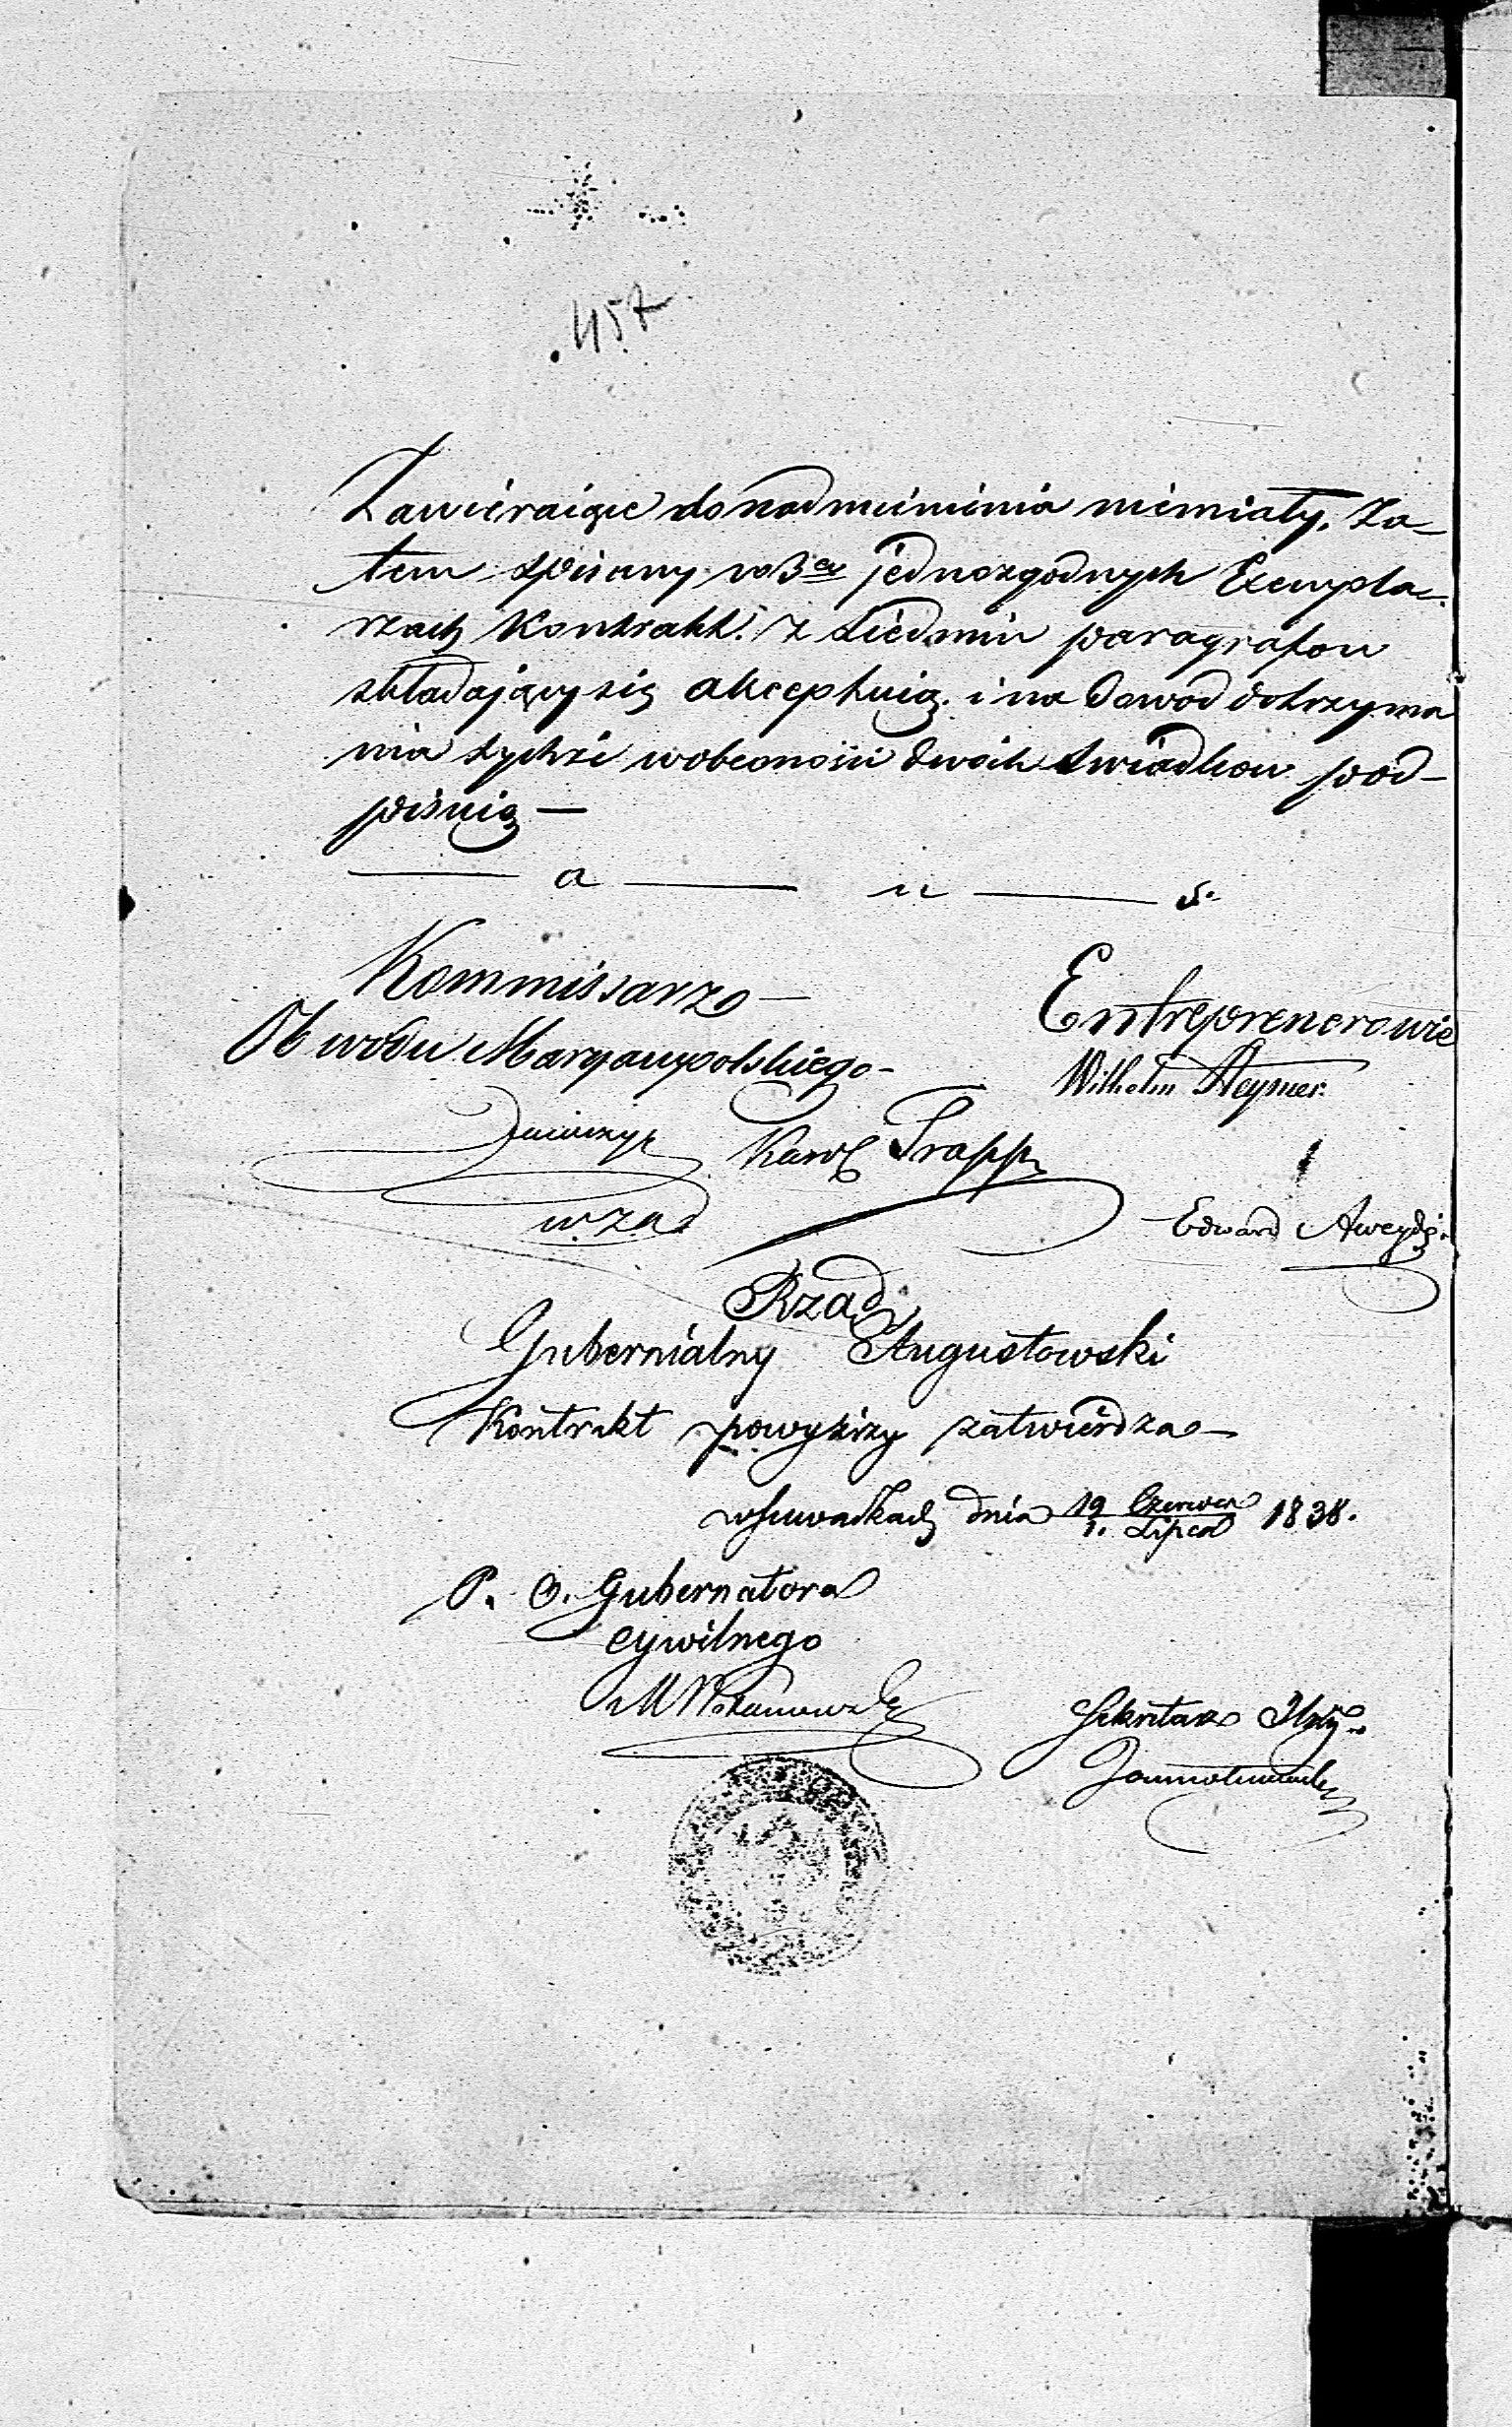 457
Zawieraiące do nadmienienia niemiały. Za-
tem spisany w 3ch jednozgodnych Exempla-
rzach Kontrakt. z Siedmiu paragrafow
składający się akceptuią. i na dowod dotrzyma
nia tychże w obecności dwóch Swiadkow pod-
pisuią —
— a — u — s.
Kommissarz
Obwodu Maryampolskiego
Entreprenerowie
Wilhelm
Karol Trapp
w. zas
Edward
Rząd
Gubernialny Augustowski
Kontrakt powyższy zatwierdza
w Suwałkach dnia 19 Czerwca / 1. Lipca 1838.
P. O. Gubernatora
cywilnego
Sekretarz